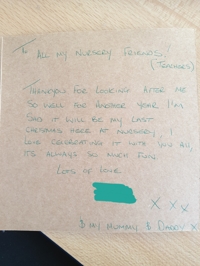 To ALL MY NURSERY FRIENDS!
(TEACHERS)
THANKYOU FOR LOOKING AFTER ME
SO WELL FOR ANOTHER YEAR I'M
SAD IT WILL BE MY LAST
CHRISTMAS HERE AT NURSERY. I
LOVE CELEBRATING IT WITH YOU ALL
ITS ALWAYS SO MUCH FUN.
LOTS OF LOVE
X X X
& MY MUMMY & DADDY X